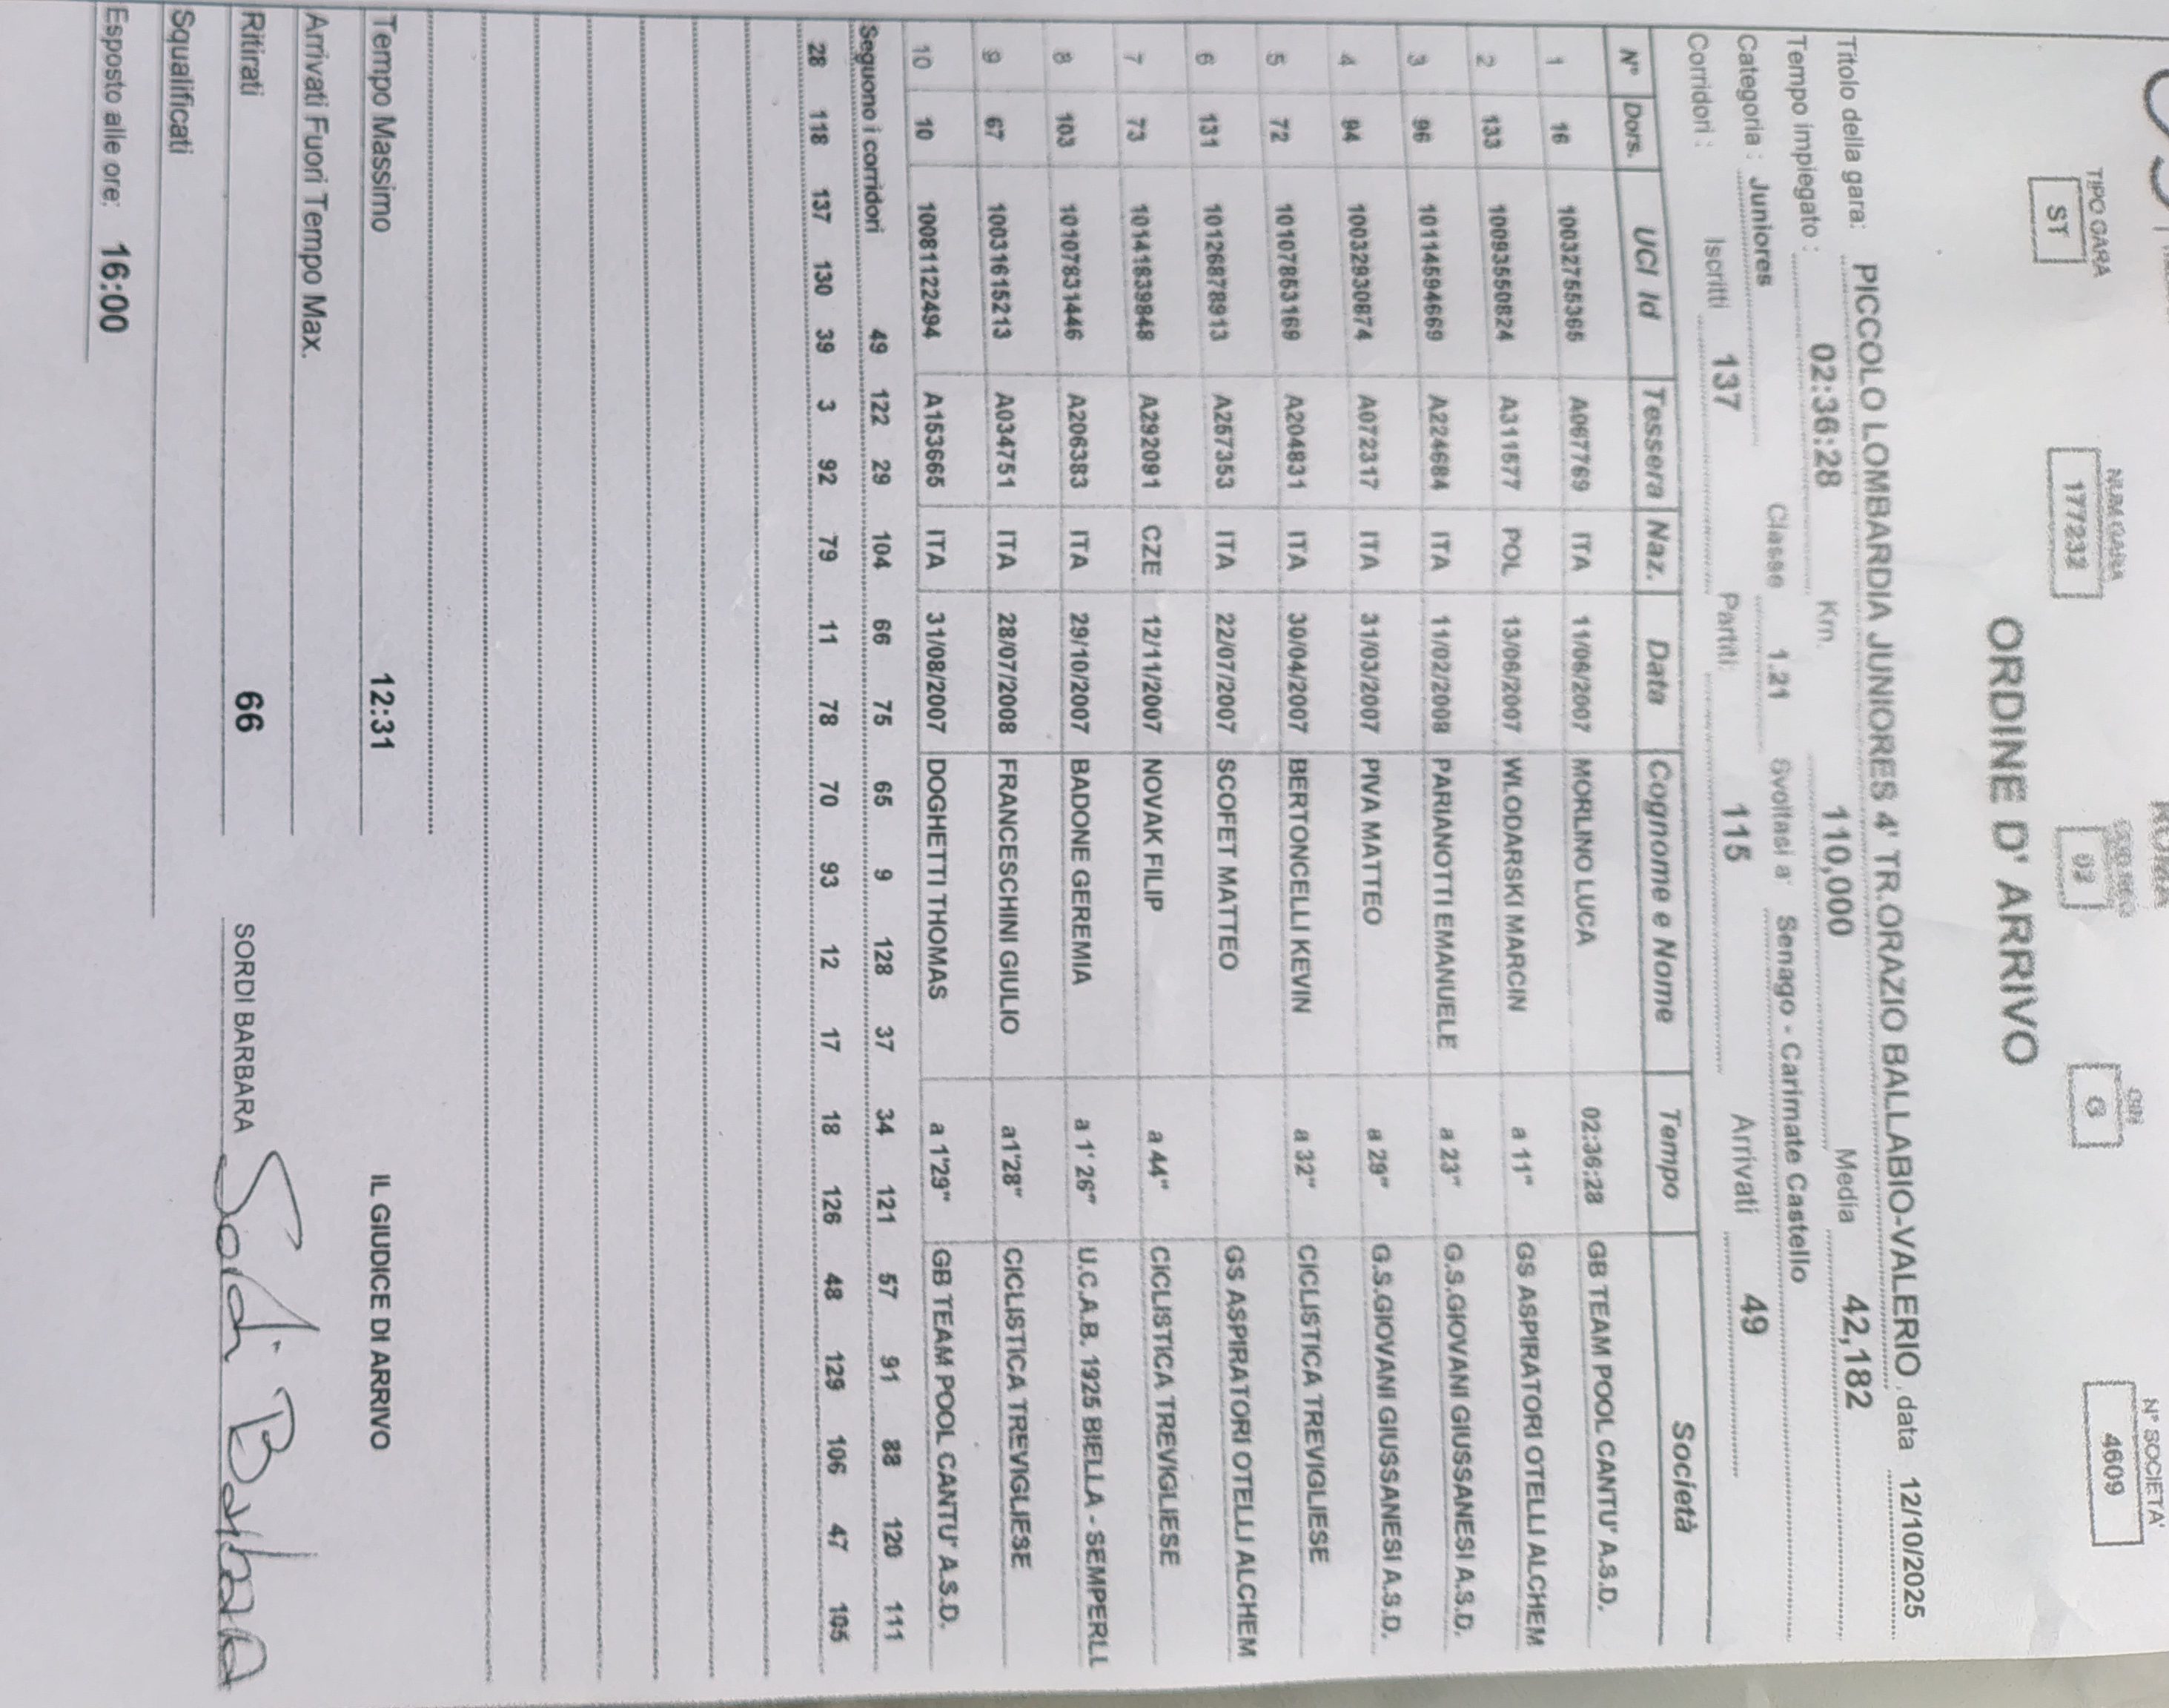 TIPO GARA NUM GARA N° SOCIETA'
ST 177232 02 G 4609
ORDINE D' ARRIVO
Titolo della gara: PICCOLO LOMBARDIA JUNIORES 4' TR.ORAZIO BALLABIO-VALERIO , data 12/10/2025
Tempo impiegato : 02:36:28 Km. 110,000 Media 42,182
Categoria : Juniores Classe 1.21 Svoltasi a Senago - Carimate Castello
Corridori : Iscritti 137 Partiti 115 Arrivati 49
N° Dors. UCI Id Tessera Naz. Data Cognome e Nome Tempo Società
1 16 10032755365 A067769 ITA 11/06/2007 MORLINO LUCA 02:36:28 GB TEAM POOL CANTU' A.S.D.
2 133 10093550824 A311577 POL 13/06/2007 WLODARSKI MARCIN a 11" GS ASPIRATORI OTELLI ALCHEM
3 96 10114594669 A224684 ITA 11/02/2008 PARIANOTTI EMANUELE a 23" G.S.GIOVANI GIUSSANESI A.S.D.
4 94 10032930874 A072317 ITA 31/03/2007 PIVA MATTEO a 29" G.S.GIOVANI GIUSSANESI A.S.D.
5 72 10107853169 A204831 ITA 30/04/2007 BERTONCELLI KEVIN a 32" CICLISTICA TREVIGLIESE
6 131 10126878913 A257353 ITA 22/07/2007 SCOFET MATTEO GS ASPIRATORI OTELLI ALCHEM
7 73 10141839848 A292091 CZE 12/11/2007 NOVAK FILIP a 44" CICLISTICA TREVIGLIESE
8 103 10107831446 A206383 ITA 29/10/2007 BADONE GEREMIA a 1' 26" U.C.A.B. 1925 BIELLA - SEMPERLL
9 67 10031615213 A034751 ITA 28/07/2008 FRANCESCHINI GIULIO a1'28" CICLISTICA TREVIGLIESE
10 10 10081122494 A153665 ITA 31/08/2007 DOGHETTI THOMAS a 1'29" GB TEAM POOL CANTU' A.S.D.
Seguono i corridori 49 122 29 104 66 75 65 9 128 37 34 121 57 91 88 120 111
28 118 137 130 39 3 92 79 11 78 70 93 12 17 18 126 48 129 106 47 105
Tempo Massimo 12:31 IL GIUDICE DI ARRIVO
Arrivati Fuori Tempo Max.
Ritirati 66 SORDI BARBARA Sordi Barbara
Squalificati
Esposto alle ore: 16:00